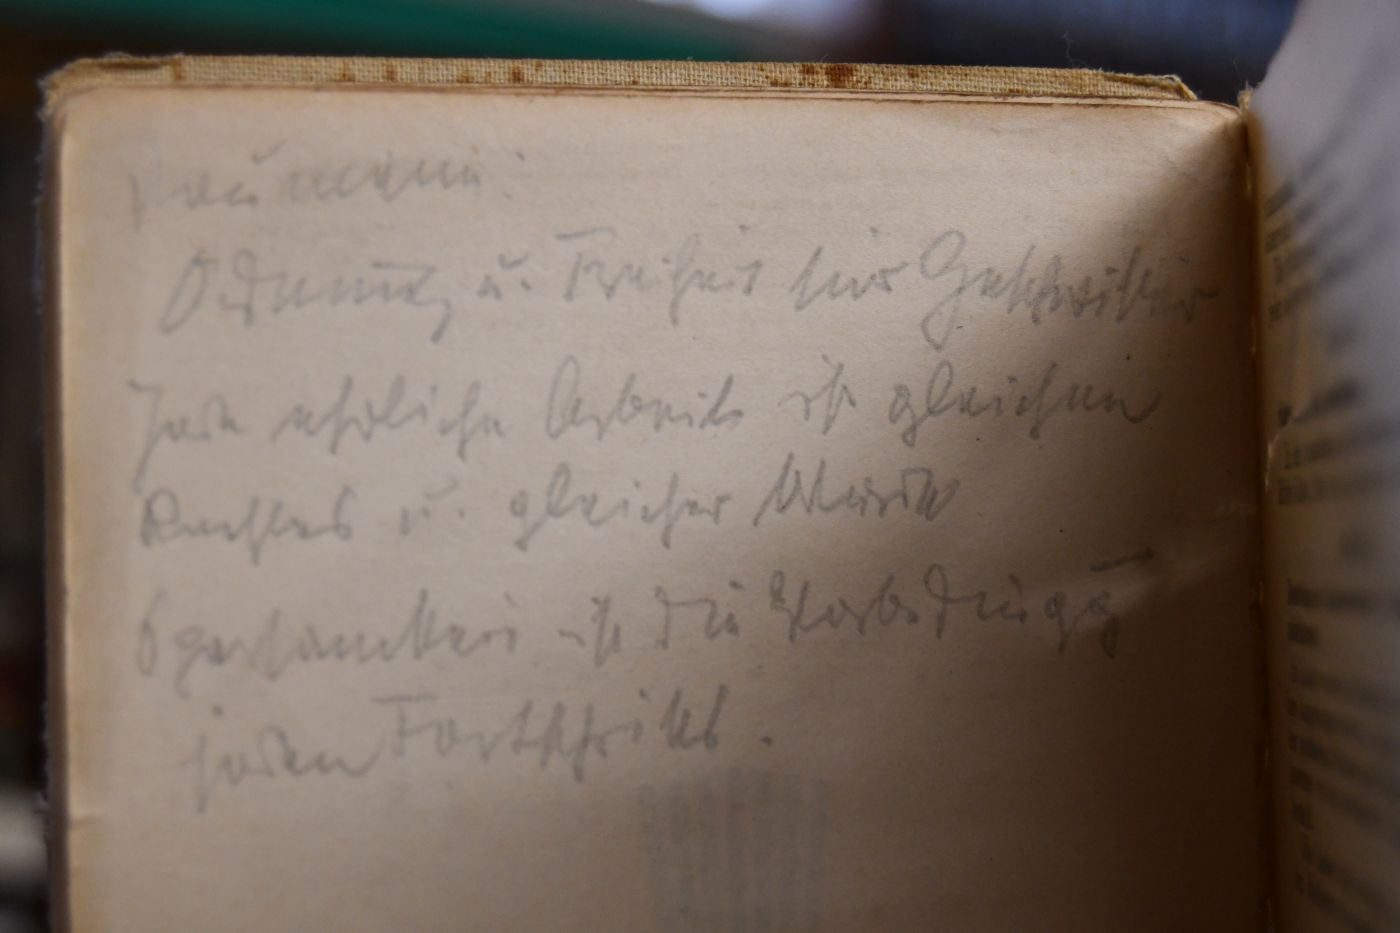 Naumann:
Ordnung u. Freiheit sind Geschwister
Jede ehrliche Arbeit ist gleichen
Rechtes u. gleicher Würde
Sparsamkeit ist die Vorbedingg
jeden Fortschritts.